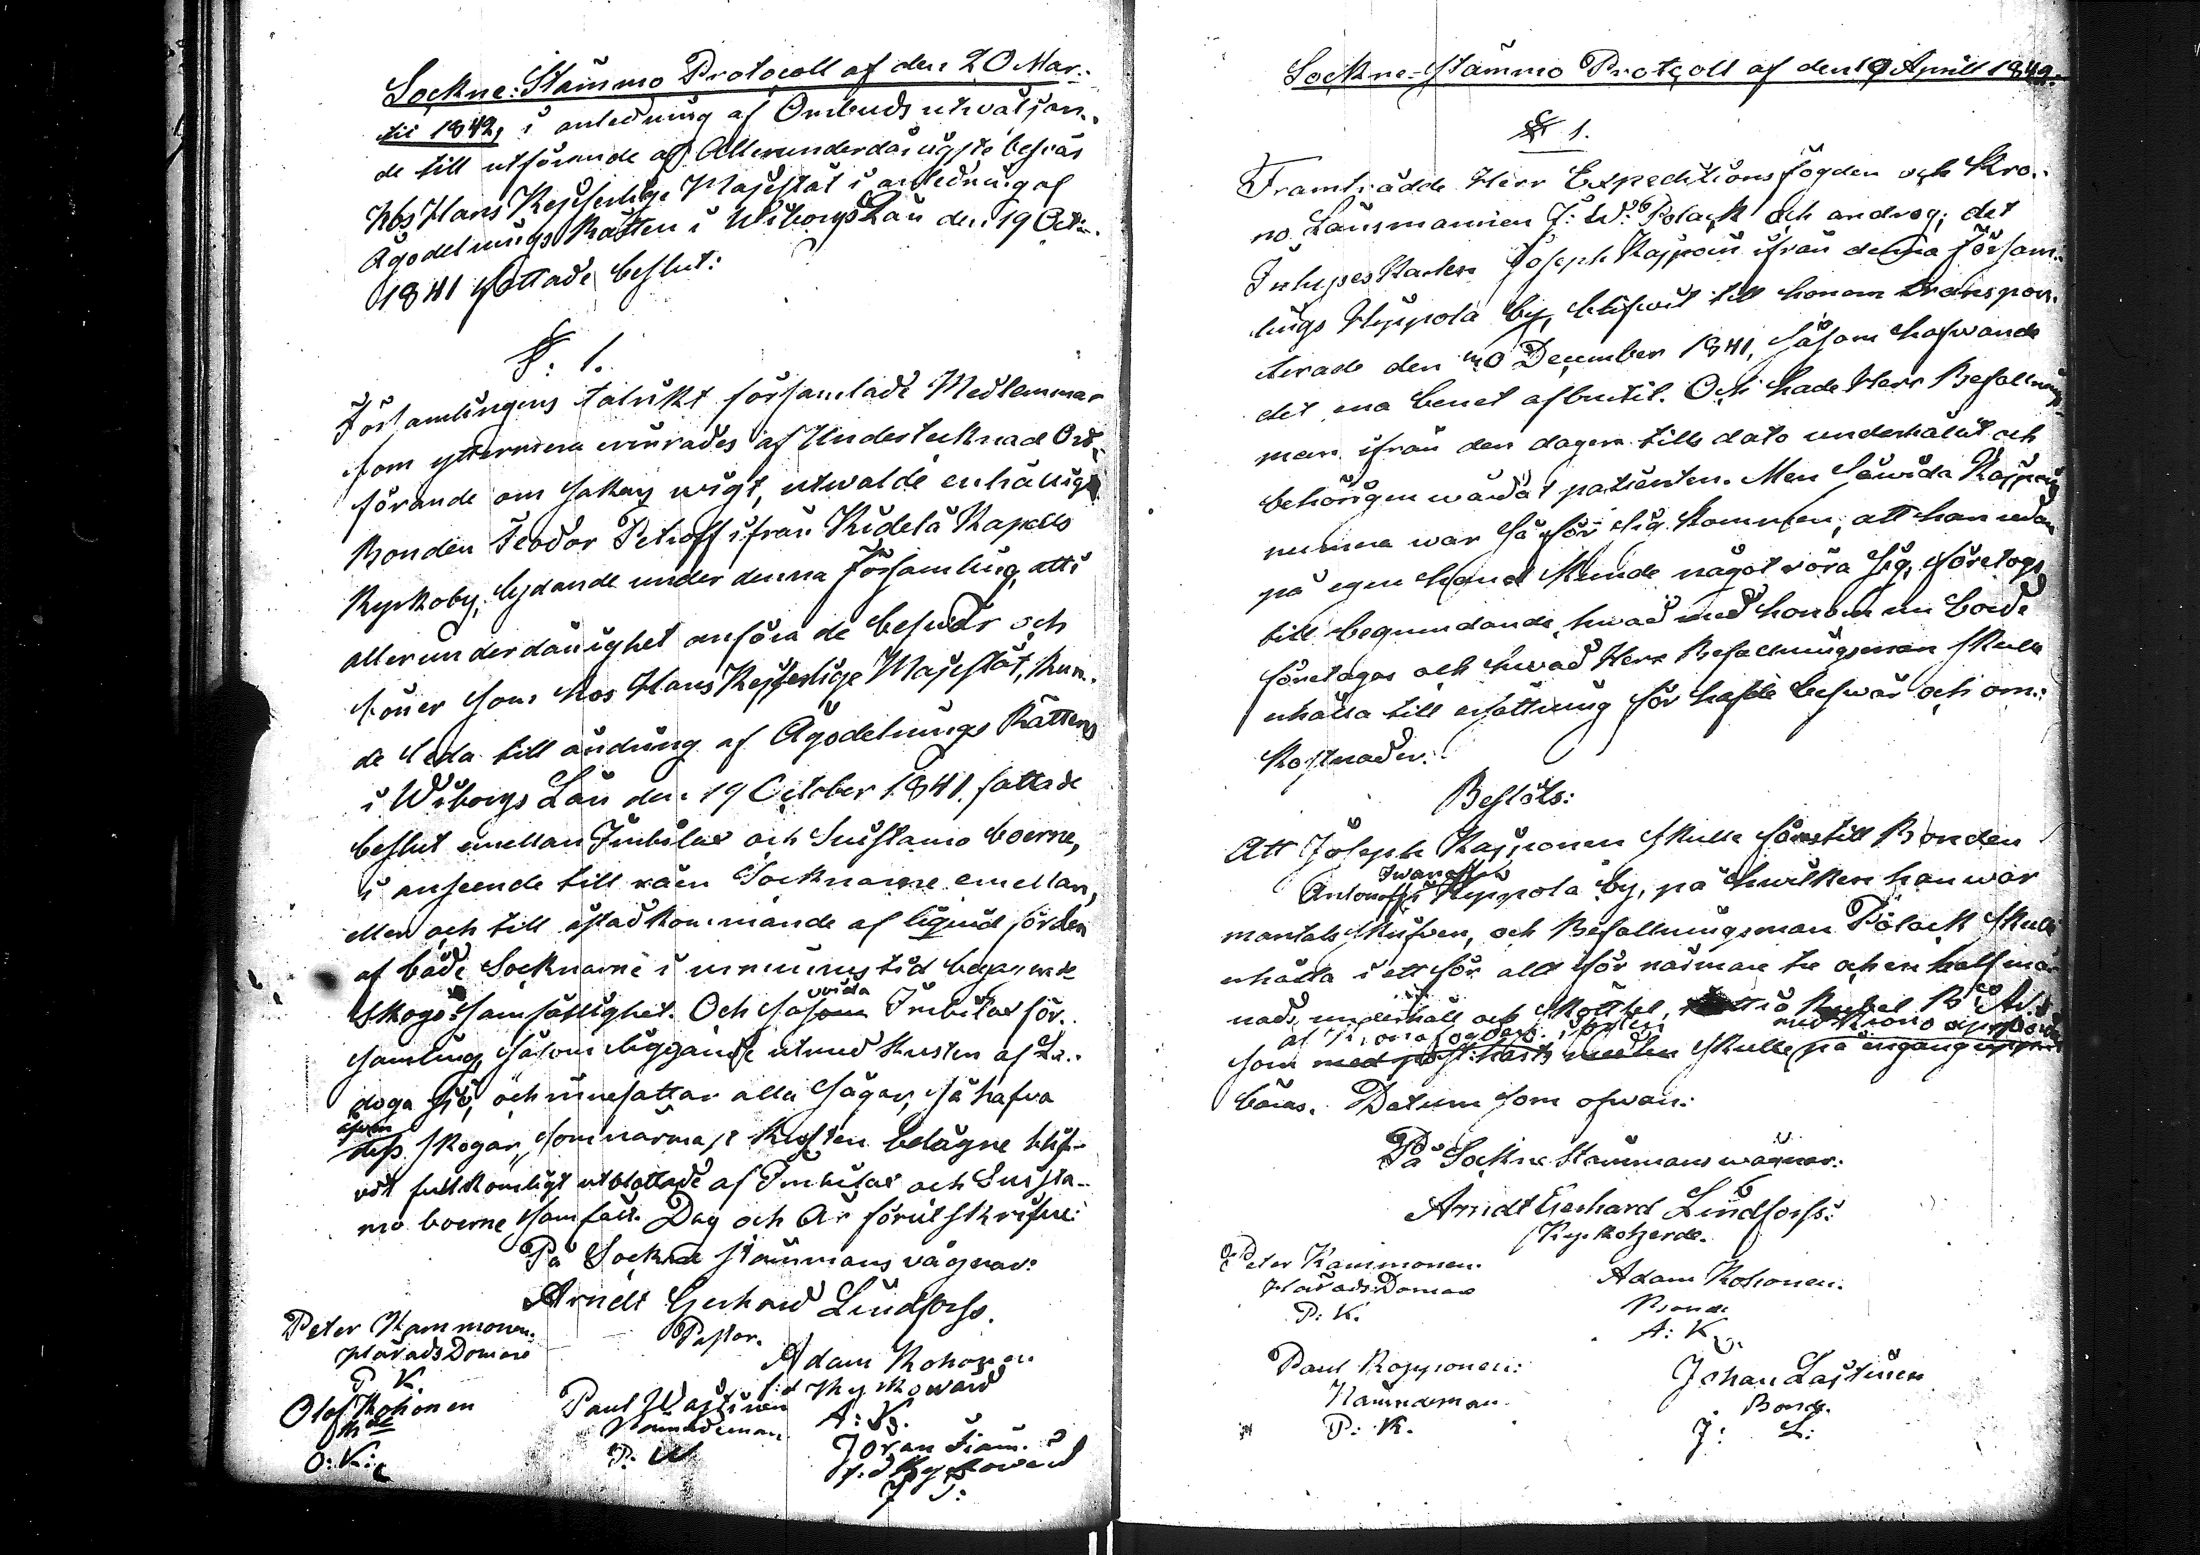 Sockne-Stämmo Protocoll af den 20 Mar-
tii 1842, i anledning af Ombuds utväljan-
de till utförande af Allerunderdånigste besvär
hos Hans Kejserlige Majestät i anledning af
Ägodelnings Rätten i Wiborgs Län den 19 Octr.
1841 fattade beslut:
§. 1.
Församlingens talrikt församlade Medlemmar
som yttermera erinrades af Undertecknad Ord-
förande om sakens wigt, utwalde enhälligt
Bonden Feodor Petroff ifrån Kidelä Kapells
Kyrkoby, lydande under denna Församling, att i
allerunderdånighet anföra de beswär och
böner som hos Hans Kejserlige Majestät, kun-
de leda till ändring af Ägodelnings Rättens
i Wiborgs Län den 19 October 1841 fattade
beslut emellan Imbilax och Suistamo boerne,
i anseende till råen Socknarne emellan,
eller och till åstadkommande af
af både Socknarne i urminnes tid begagnade
Skogs-samfällighet. Och såvida Imbilax för-
samling, såsom liggande utmed kusten af La-
doga sjö, och innefattar alla sågar, så hafva
äfven dess skogar, som närmast kusten belägne blif-
vit fullkomligt utblottade af Imbilax och Suista-
mo boerne samfält. Dag och År förutskrifne:
På Sockne stämmans vägnar:
Arndt Gerhard Lindforss.
Pastor.
Peter Kammonen.
HäradsDomare
P. K.
Adam Kohonen
f.d Kyrkovärd
A: K.
Olof Kohonen
O: K:
Paul Wastinen
Nämndeman
P. W
Joran
f.d Kyrkoverd
J
Sockne-Stämmo Protocoll af den 19 Aprill 1842.
§ 1.
Framträdde Herr Expeditionsfogden och Kro-
no Länsmannen J: W: Polack och androg, det
Inhyses Karlen Joseph Kapponen ifrån denna Försam-
lings Hyppölä by, blifvit till honom transpor-
terade den 20 December 1841, såsom hafwande
det ena benet afbrutit. Och hade Herr Befallnings-
man ifrån den dagen tills dato underhållit och
behörigen wårdat patienten. Men såwida Kapponen
numera war så för sig kommen, att han redan
på egen hand kunde något röra sig, företogs
till begrundande, hwad med honom nu borde
företagas och hwad Herr Befallningsman skulle
erhålla till ersättning för hafde beswär och om-
kostnader:
Beslöts:
Att Joseph Kapponen skulle föras till Bonden
Antonoff Iwanoff i Hyppölä by, på hwilken han war
mantals skrifven, och Befallningsman Polack skulle
erhålla i ett för allt för närmare tre och en half må-
nads underhåll och skötsel, Rubel
af Kronofogden i orten med Krono uppbörd
som skulle på en gång upp-
bäras. Datum som ofwan:
På Sockne Stämmans wägnar:
Arndt Gerhard Lindforss:
Kyrkoherde.
Peter Kammonen.
HäradsDomare
P: K.
Adam Kohonen.
Bonde
A: K.
Paul Kopponen:
Nämndeman.
P: K.
Johan Lastunen
Bonde.
J: L: